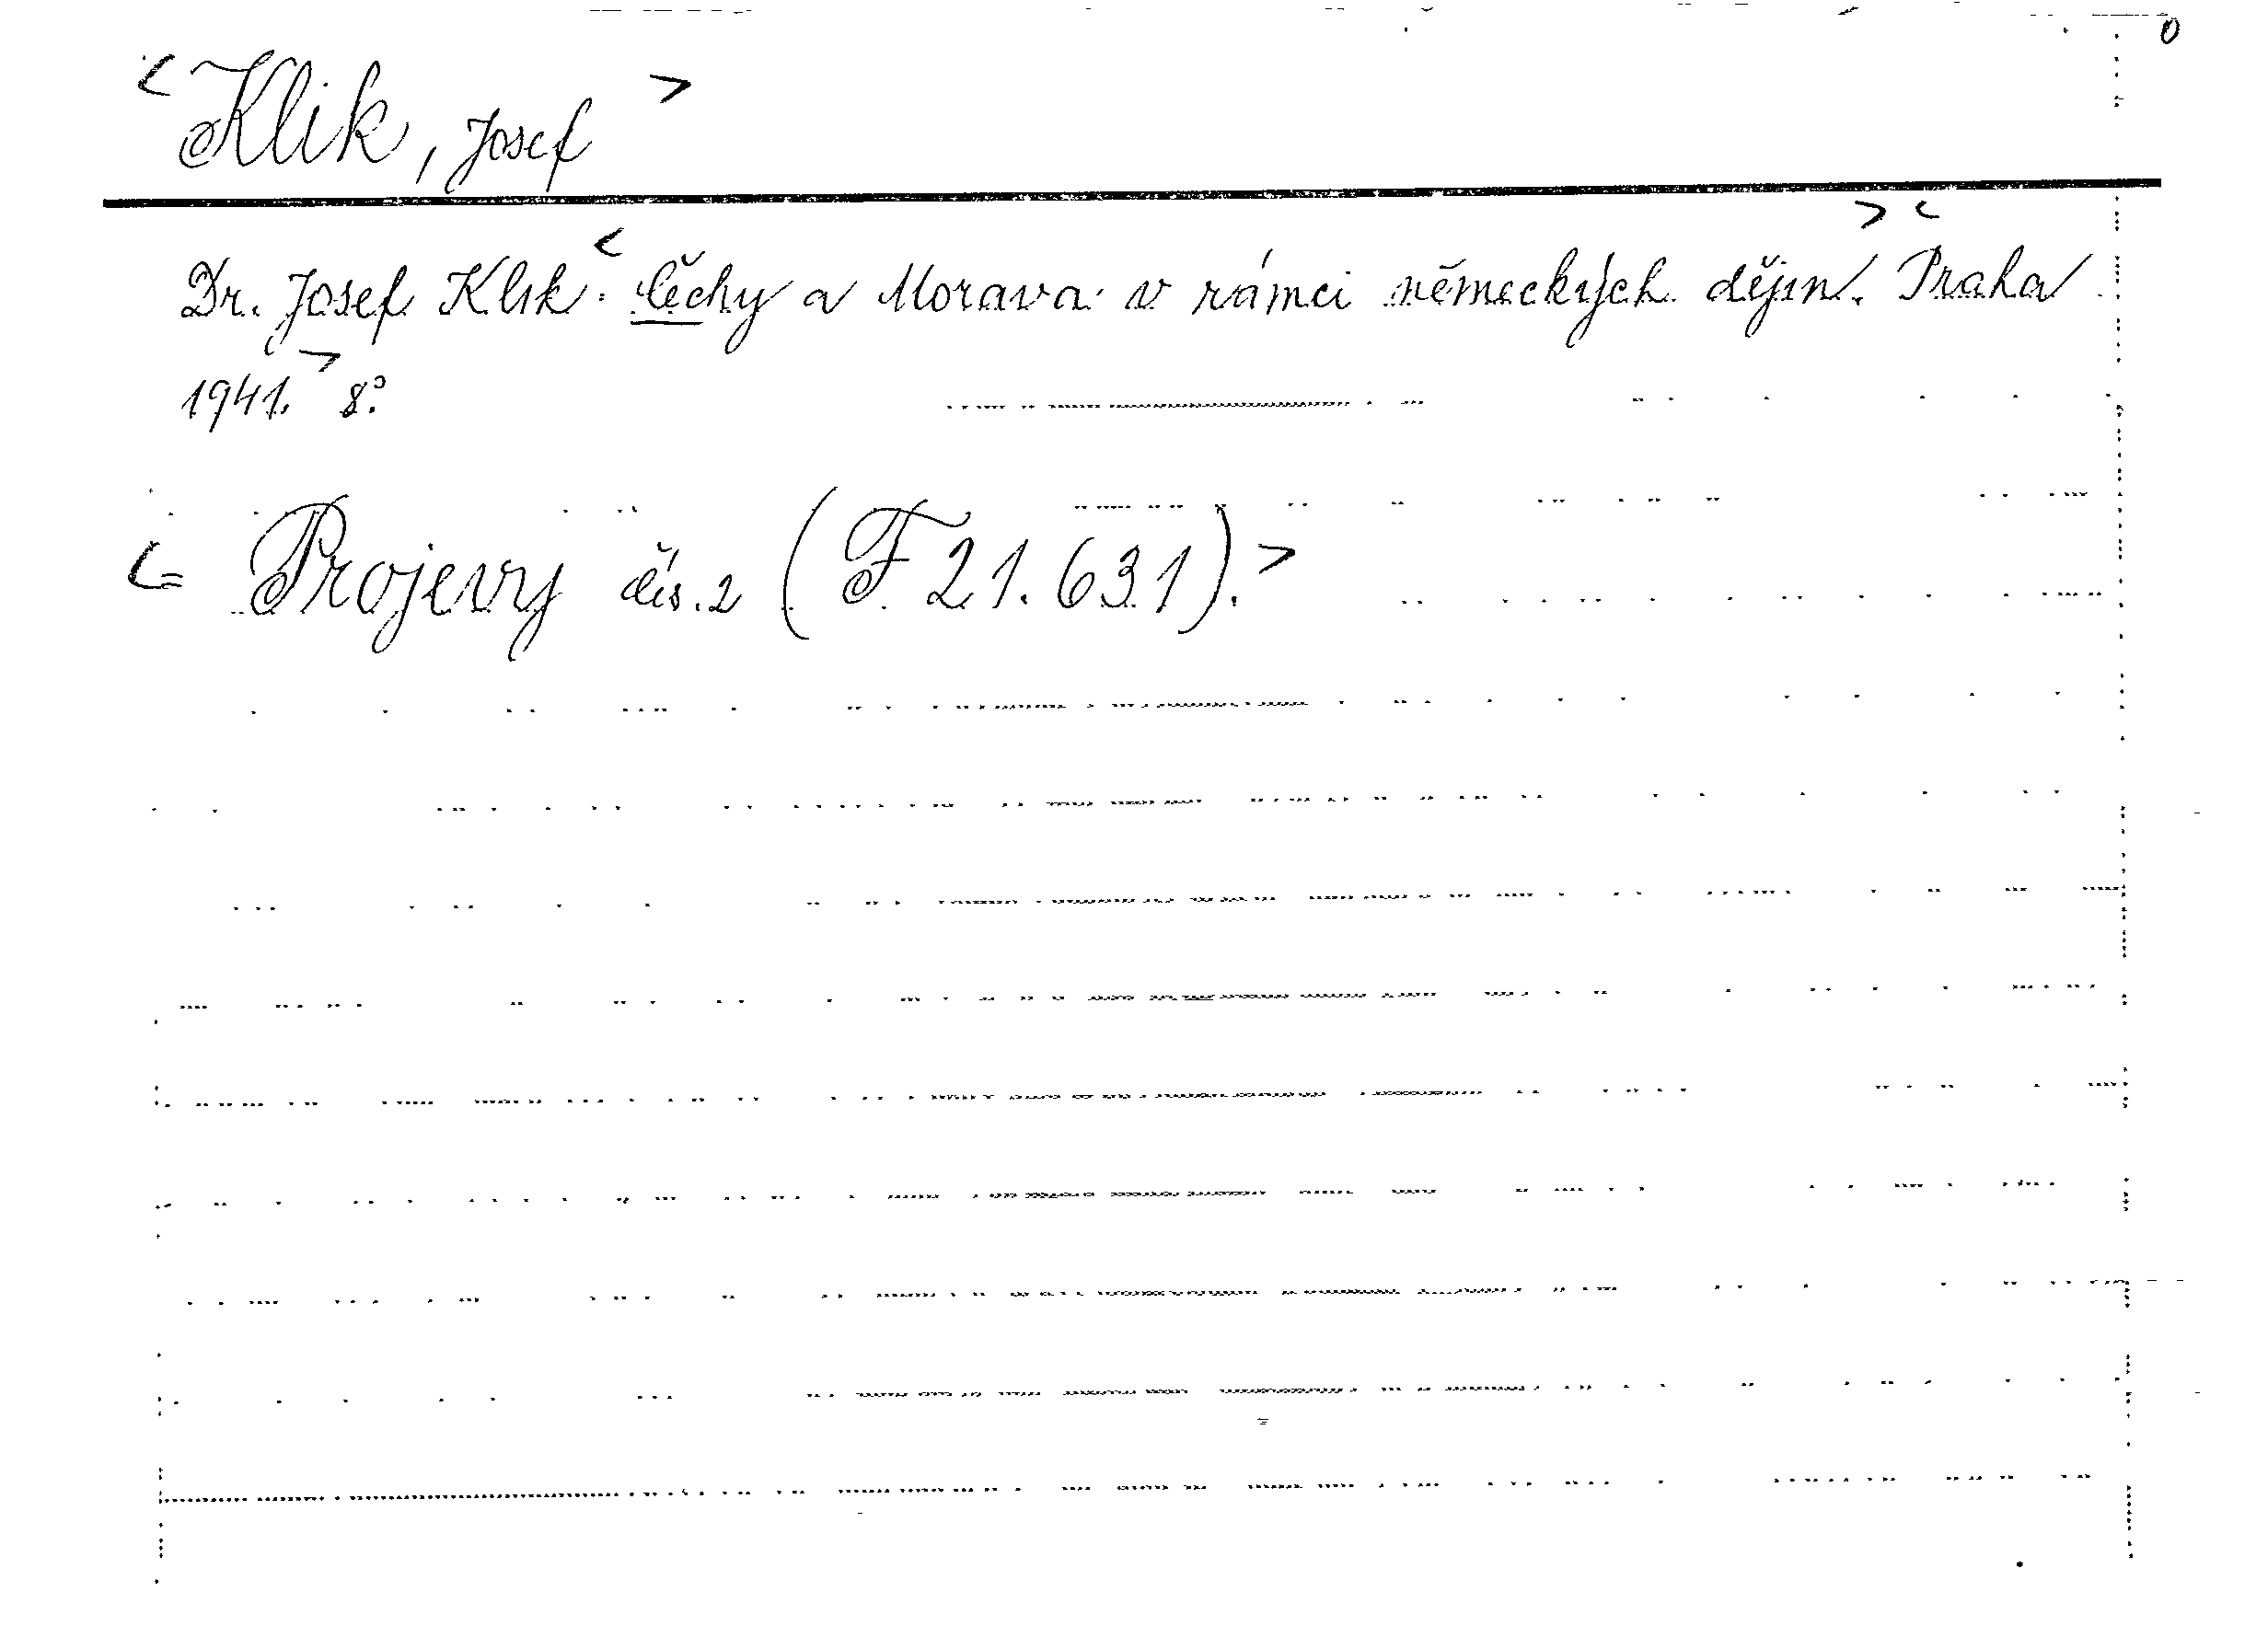 <Klik, Josef>
Dr. Josef Klik: <Čechy a Morava v rámci německých dějin.> <Praha
1941.> 8°.
<= Projevy čís. 2 (F 21.631).>